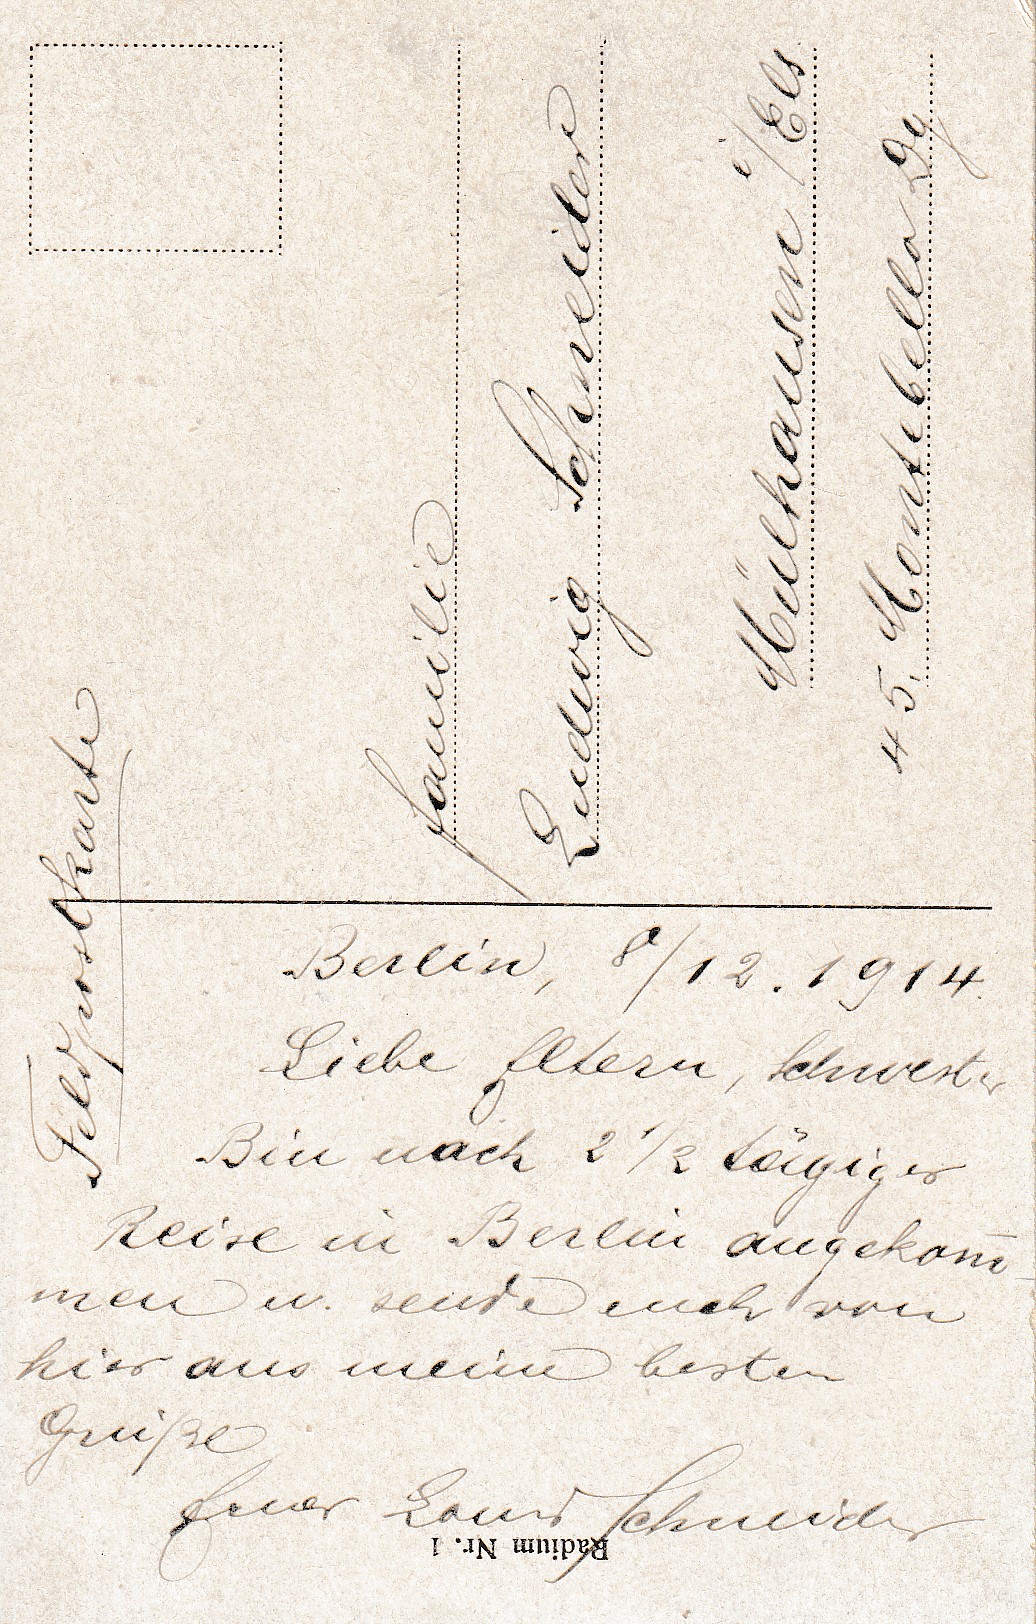 Feldpostkarte
Familie
Ludwig Schneider
Mülhausen i/Els
45. Montebello
Berlin, 8/12. 1914.
Liebe Eltern, Schwester
Bin nach 2 1/2 tägiger
Reise in Berlin angekom̅-
men u. sende euch von
hier aus meine besten
Grüße
Euer Schneider
Radium Nr. 1